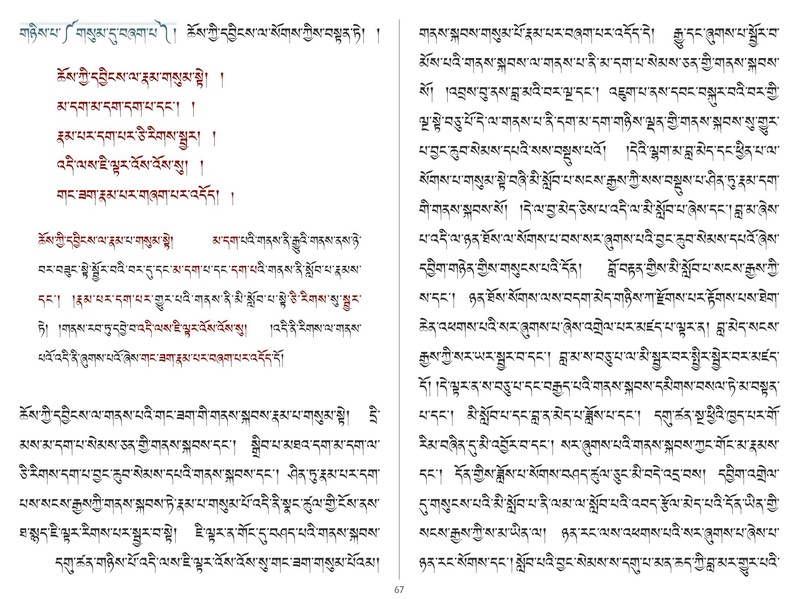 གཉིས་པ་ ༼ གསུམ་དུ་བཞག་པ་ ༽ ། ཆོས་ཀྱི་དབྱིངས་ལ་སོགས་ཀྱིས་བསྟན་ཏེ། །
ཆོས་ཀྱི་དབྱིངས་ལ་རྣམ་གསུམ་སྟེ། །
མ་དག་མ་དག་དག་པ་དང་། །
རྣམ་པར་དག་པར་ཅི་རིགས་སྦྱར། །
འདི་ལས་ཇི་ལྟར་འོས་འོས་སུ། །
གང་ཟག་རྣམ་པར་གཞག་པར་འདོད། །
ཆོས་ཀྱི་དབྱིངས་ལ་རྣམ་པ་གསུམ་སྟེ། མ་དག་པའི་གནས་ནི་རྒྱུའི་གནས་ནས་ཉེ་
བར་བཟུང་སྟེ་སྦྱོར་བའི་བར་དུ་དང་མ་དག་པ་དང་དག་པའི་གནས་ནི་སློབ་པ་རྣམས་
དང་། །རྣམ་པར་དག་པར་གྱུར་པའི་གནས་ནི་མི་སློབ་པ་སྟེ་ཅི་རིགས་སུ་སྦྱར་
ཏེ། །གནས་རབ་ཏུ་དབྱེ་བ་འདི་ལས་ཇི་ལྟར་འོས་འོས་སུ། །འདི་ནི་རིགས་ལ་གནས་
པའོ་འདི་ནི་ཞུགས་པའོ་ཞེས་གང་ཟག་རྣམ་པར་བཞག་པར་འདོད་དོ།
ཆོས་ཀྱི་དབྱིངས་ལ་གནས་པའི་གང་ཟག་གི་གནས་སྐབས་རྣམ་པ་གསུམ་སྟེ། དྲི་
མས་མ་དག་པ་སེམས་ཅན་གྱི་གནས་སྐབས་དང་། སྒྲིབ་པ་མཐའ་དག་མ་དག་ལ་
ཅི་རིགས་དག་པ་བྱང་ཆུབ་སེམས་དཔའི་གནས་སྐབས་དང་། ཤིན་ཏུ་རྣམ་པར་དག་
པས་སངས་རྒྱས་ཀྱི་གནས་སྐབས་ཏེ་རྣམ་པ་གསུམ་པོ་འདི་ནི་སྣང་ཚུལ་གྱི་ངོས་ནས་
ཐ་སྙད་ཇི་ལྟར་རིགས་པར་སྦྱར་བ་སྟེ། ཇི་ལྟར་ན་གོང་དུ་བཤད་པའི་གནས་སྐབས་
དགུ་ཚན་གཉིས་པོ་འདི་ལས་ཇི་ལྟར་འོས་འོས་སུ་གང་ཟག་གསུམ་པོའམ།
གནས་སྐབས་གསུམ་པོ་རྣམ་པར་བཞག་པར་འདོད་དེ། རྒྱུ་དང་ཞུགས་པ་སྦྱོར་བ་
མོས་པའི་གནས་སྐབས་ལ་གནས་པ་ནི་མ་དག་པ་སེམས་ཅན་གྱི་གནས་སྐབས་
སོ། །འབྲས་བུ་ནས་བླ་མའི་བར་ལྔ་དང་། འཇུག་པ་ནས་དབང་བསྐུར་བའི་བར་གྱི་
ལྔ་སྟེ་བཅུ་པོ་དེ་ལ་གནས་པ་ནི་དག་མ་དག་གཉིས་ལྡན་གྱི་གནས་སྐབས་སུ་གྱུར་
པ་བྱང་ཆུབ་སེམས་དཔའི་སས་བསྡུས་པའོ། །དེའི་ལྷག་མ་བླ་མེད་དང་ཕྱིན་པ་ལ་
སོགས་པ་གསུམ་སྟེ་བཞི་མི་སློབ་པ་སངས་རྒྱས་ཀྱི་སས་བསྡུས་པ་ཤིན་ཏུ་རྣམ་དག་
གི་གནས་སྐབས་སོ། །དེ་ལ་བྱ་མེད་ཅེས་པ་འདི་ལ་མི་སློབ་པ་ཞེས་དང་། བླ་མ་ཞེས་
པ་འདི་ལ་ཉན་ཐོས་ལ་སོགས་པ་བས་སར་ཞུགས་པའི་བྱང་ཆུབ་སེམས་དཔའོ་ཞེས་
དབྱིག་གཉེན་གྱིས་གསུངས་པའི་དོན། བློ་བརྟན་གྱིས་མི་སློབ་པ་སངས་རྒྱས་ཀྱི་
ས་དང་། ཉན་ཐོས་སོགས་ལས་བདག་མེད་གཉིས་ཀ་རྫོགས་པར་རྟོགས་པས་ཐེག་
ཆེན་འཕགས་པའི་སར་ཞུགས་པ་ཞེས་འགྲེལ་པར་མཛད་པ་ལྟར་ན། བླ་མེད་སངས་
རྒྱས་ཀྱི་སར་ཡར་སྦྱར་བ་དང་། བླ་མ་ས་བཅུ་པ་ལ་མི་སྦྱར་བར་སྤྱིར་སྦྱེར་བར་མཛད་
དོ། །དེ་ལྟར་ན་ས་བཅུ་པ་དང་བརྒྱད་པའི་གནས་སྐབས་དམིགས་བསལ་ཏེ་མ་བསྟན་
པ་དང་། མི་སློབ་པ་དང་བླ་ན་མེད་པ་ཟློས་པ་དང་། དགུ་ཚན་སྔ་ཕྱིའི་ཁྱད་པར་གོ་
རིམ་བཞིན་དུ་མི་འབྱོར་བ་དང་། སར་ཞུགས་པའི་གནས་སྐབས་ཀྱང་གོང་མ་རྣམས་
དང་། དོན་གྱིས་ཟློས་པ་སོགས་བཤད་ཚུལ་ཅུང་མི་བདེ་འདྲ་བས། དབྱིག་འགྲེལ་
དུ་གསུངས་པའི་མི་སློབ་པ་ནི་ལམ་ལ་སློབ་པའི་འབད་རྩོལ་མེད་པའི་དོན་ཡིན་གྱི་
སངས་རྒྱས་ཀྱི་ས་མ་ཡིན་ལ། ཉན་རང་ལས་འཕགས་པའི་སར་ཞུགས་པ་ཞེས་པ་
ཉན་རང་སོགས་དང་། སློབ་པའི་བྱང་སེམས་ས་དགུ་པ་མན་ཆད་ཀྱི་བླ་མར་གྱུར་པའི་
67